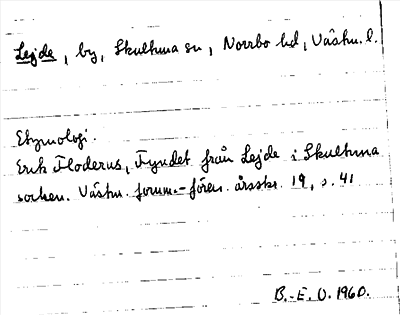 Lejde, by, Skultuna sn, Norrbo hd, Västm. l.
Etymologi.
Erik Floderus, Fyndet från Lejde i Skultuna
socken. Västm. fornm.-fören. årsskr. 19, s. 41
B.-E. O. 1960.